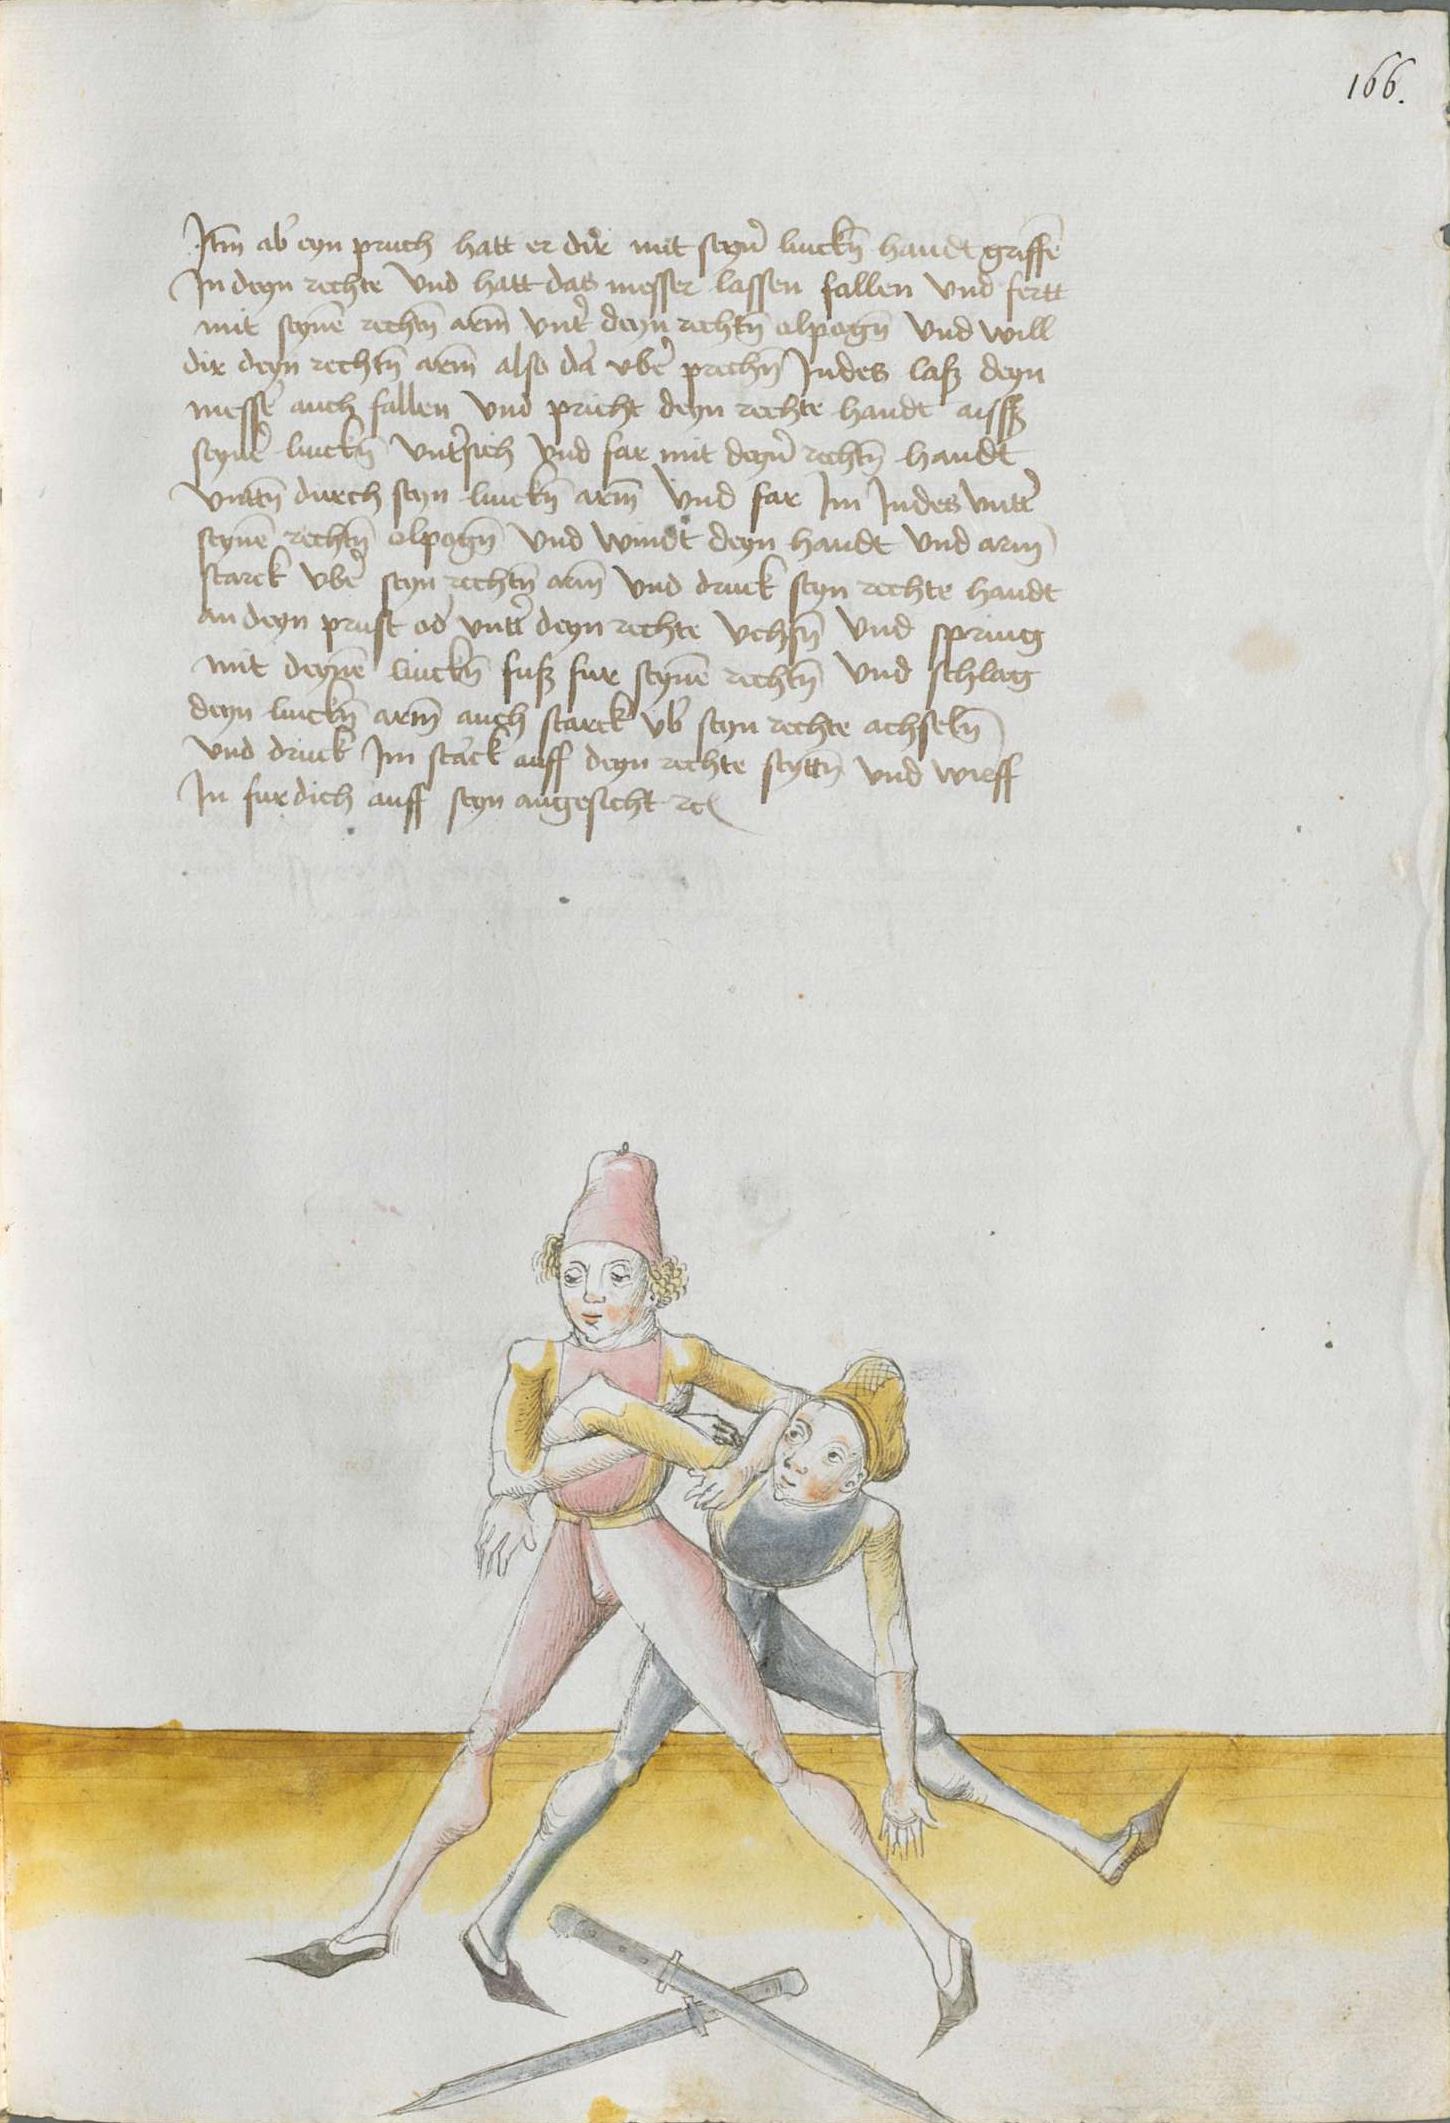 166.
Itm̄ ab' eyn pruch hatt er dir mit seyn' linckn̄ handt griffē
In deyn rechte Vnd hatt das messer lassen fallen Vnd fertt
mit seynē rechtn̄ arm̄ Vnt' deyn rechtn̄ elpogn̄ Vnd will
dir deyn rechtn̄ arm̄ also da' vbe' prechn̄ Indes laß deyn
messe' auch fallen Vnd pricht deyn rechte handt auß
seyne' linckn̄ Vnt'sich Vnd far mit deyn' rechtn̄ handt
Vnttn̄ durch seyn linckn̄ arm̄ Vnd far Im Indes Vntt'
seynē rechtn̄ elpogn̄ Vnd windt deyn handt Vnd arm
starck Vbe' seyn rechtn̄ arm̄ Vnd druck seyn rechte handt
an deyn prust od' vntt' deyn rechte Vchsn̄ Vnd spring
mit deynē linckn̄ fuß fur seynē rechtn̄ Vnd schlag
deyn linckn̄ arm̄ auch starck vb' seyn rechte achseln̄
Vnd druck Im starck auff deyn rechte seyttn̄ Vnd wirff
In fur dich auff seyn angesicht ꝛc